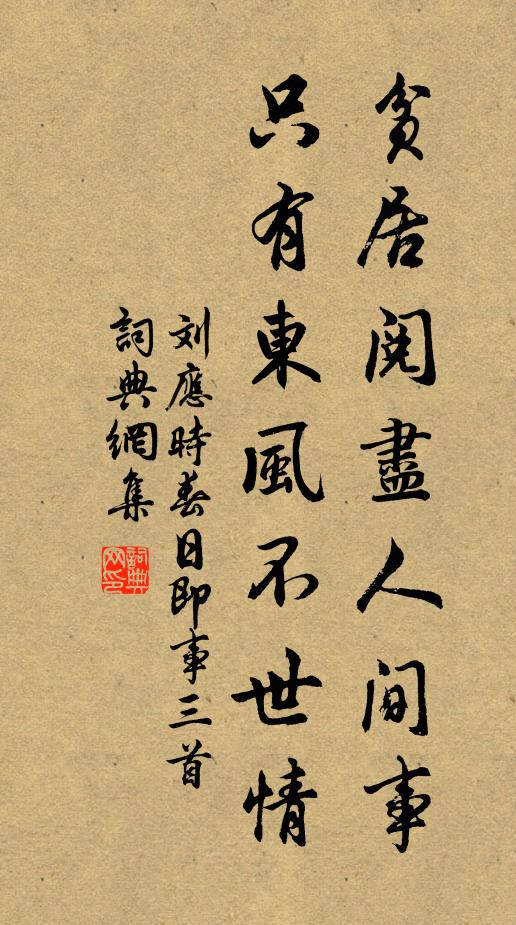 貧居閱盡人間事
只有東風不世情
刘應時春日即事三首
詞典網集
詞典網印